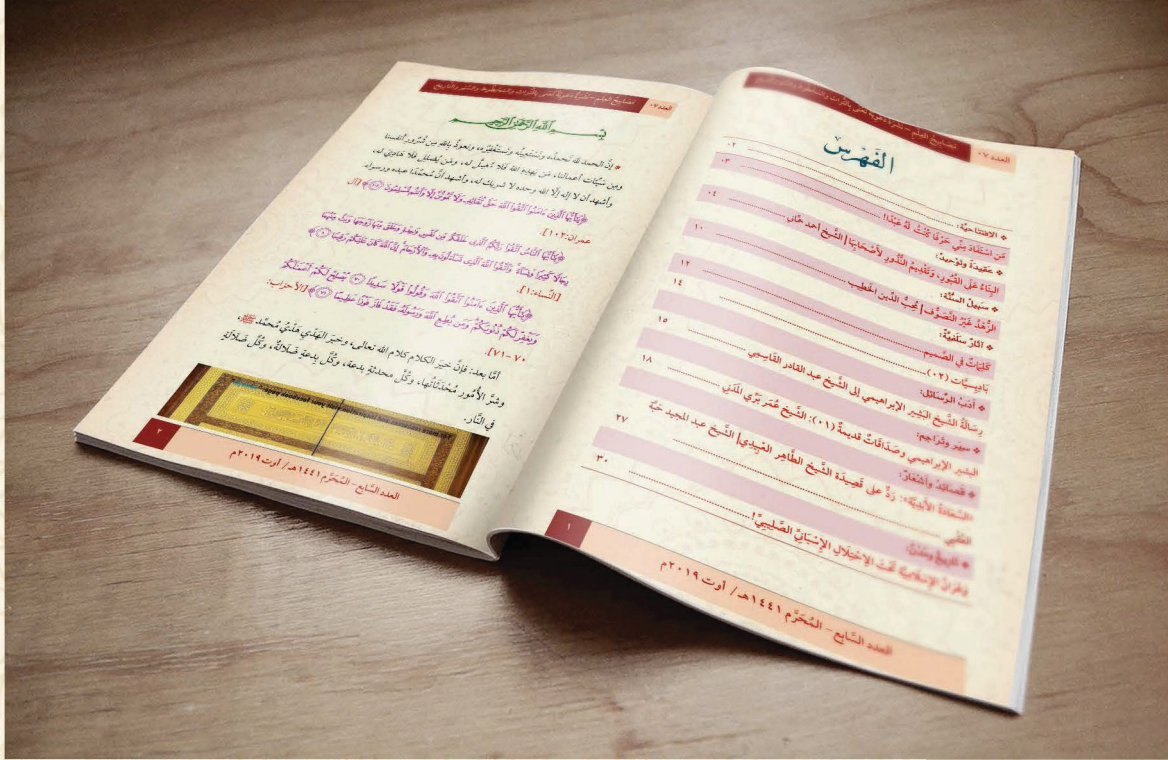 العدد ٠٧
مَصَابيحُ العِلْم – نشرةٌ دَعَويَّةٌ تُعنى بالتُّراث والمَخطوط والسِّيَر والتَّاريخ
الفَهْرسُ
❖ الافتتاحيَّة:
مَن اسْتَفَادَ مِنِّي حَرْفًا كُنْتُ لَهُ عَبْدًا! ٠٢
❖ عَقيدَةٌ وتَوْحيدٌ: ٠٣
البِنَاءُ عَلى القُبُورِ، وتَقْدِيمُ النُّذُورِ لأَصْحَابِهَا | الشَّيخ أحمد حمَّاني ٠٤
❖ سَبيلُ السُّنَّة:
الزُّهْدُ غَيْرُ التَّصَوُّف | مُحِبُّ الدِّين الخَطيب ١٠
❖ آثَارٌ سَلَفيَّةٌ:
كَلِمَاتٌ في الصَّميم ١٢
بَادِيسيَّات (٠٢) ١٤
❖ أدَبُ الرَّسَائل:
رِسَالَةُ الشَّيخ البَشير الإبراهيمي إلى الشَّيخ عبد القادر القَاسِمي ١٥
❖ سِيَر وتَرَاجِم:
البشير الإبراهيمي وصَدَاقَاتٌ قديمةٌ (٠١): الشَّيخ عُمَر بَرِّي المَدَني ١٨
❖ قَصَائدُ وأَشْعَارٌ:
«السَّعَادَةُ الأَبَدِيَّة»: رَدٌّ على قَصِيدَة الشَّيخ الطَّاهر العُبَيْدي | الشَّيخ عبد المجيد حبَّة
العُقْبِي ٢٧
❖ تَاريخٌ ومُدُنٌ:
وَهْرَانُ الإسْلاميَّةُ تَحْتَ الاِحْتِلَالِ الإِسْبَانِيِّ الصَّلِيبِيِّ! ٣٠
١
العدد السَّابع – المُحَرَّم ١٤٤١هـ / أوت ٢٠١٩م
العدد ٠٧
مَصَابيحُ العِلْم – نشرةٌ دَعَويَّةٌ تُعنى بالتُّراث والمَخطوط والسِّيَر والتَّاريخ
بِسْمِ اللهِ الرَّحْمَنِ الرَّحِيمِ
❖ إنَّ الحمد لله نَحمدُه، ونَستعينُه ونَستغفِرُه، ونعوذُ بالله من شُرُور أنفسنا
ومِن سَيِّئات أعمالنا، مَن يهدِه الله فلا مُضِلَّ له، ومَن يُضلِل فلا هَاديَ له،
وأشهد أن لا إله إلَّا الله وحده لا شريك له، وأشهد أنَّ مُحمَّدًا عبده ورسوله.
﴿يَٰٓأَيُّهَا ٱلَّذِينَ ءَامَنُوا۟ ٱتَّقُوا۟ ٱللَّهَ حَقَّ تُقَاتِهِۦ وَلَا تَمُوتُنَّ إِلَّا وَأَنتُم مُّسْلِمُونَ ١٠٢﴾ [آل
عمران:١٠٢].
﴿يَٰٓأَيُّهَا ٱلنَّاسُ ٱتَّقُوا۟ رَبَّكُمُ ٱلَّذِى خَلَقَكُم مِّن نَّفْسٍ وَٰحِدَةٍ وَخَلَقَ مِنْهَا زَوْجَهَا وَبَثَّ مِنْهُمَا
رِجَالًا كَثِيرًا وَنِسَآءً وَٱتَّقُوا۟ ٱللَّهَ ٱلَّذِى تَسَآءَلُونَ بِهِۦ وَٱلْأَرْحَامَ إِنَّ ٱللَّهَ كَانَ عَلَيْكُمْ رَقِيبًا ١﴾
[النِّساء:١].
﴿يَٰٓأَيُّهَا ٱلَّذِينَ ءَامَنُوا۟ ٱتَّقُوا۟ ٱللَّهَ وَقُولُوا۟ قَوْلًا سَدِيدًا ٧٠ يُصْلِحْ لَكُمْ أَعْمَٰلَكُمْ
وَيَغْفِرْ لَكُمْ ذُنُوبَكُمْ وَمَن يُطِعِ ٱللَّهَ وَرَسُولَهُۥ فَقَدْ فَازَ فَوْزًا عَظِيمًا ٧١﴾ [الأحزاب:
٧٠-٧١].
أمَّا بعد: فإنَّ خيرَ الكلام كلام الله تعالى، وخيرَ الهَدْي هَدْيُ محمَّد ﷺ،
وشرَّ الأمُور مُحْدَثَاتُها، وكُلَّ محدثةٍ بدعة، وكُلَّ بِدعةٍ ضلالَةٌ، وكُلَّ ضَلالَةٍ
في النَّار.
٢
العدد السَّابع – المُحَرَّم ١٤٤١هـ / أوت ٢٠١٩م